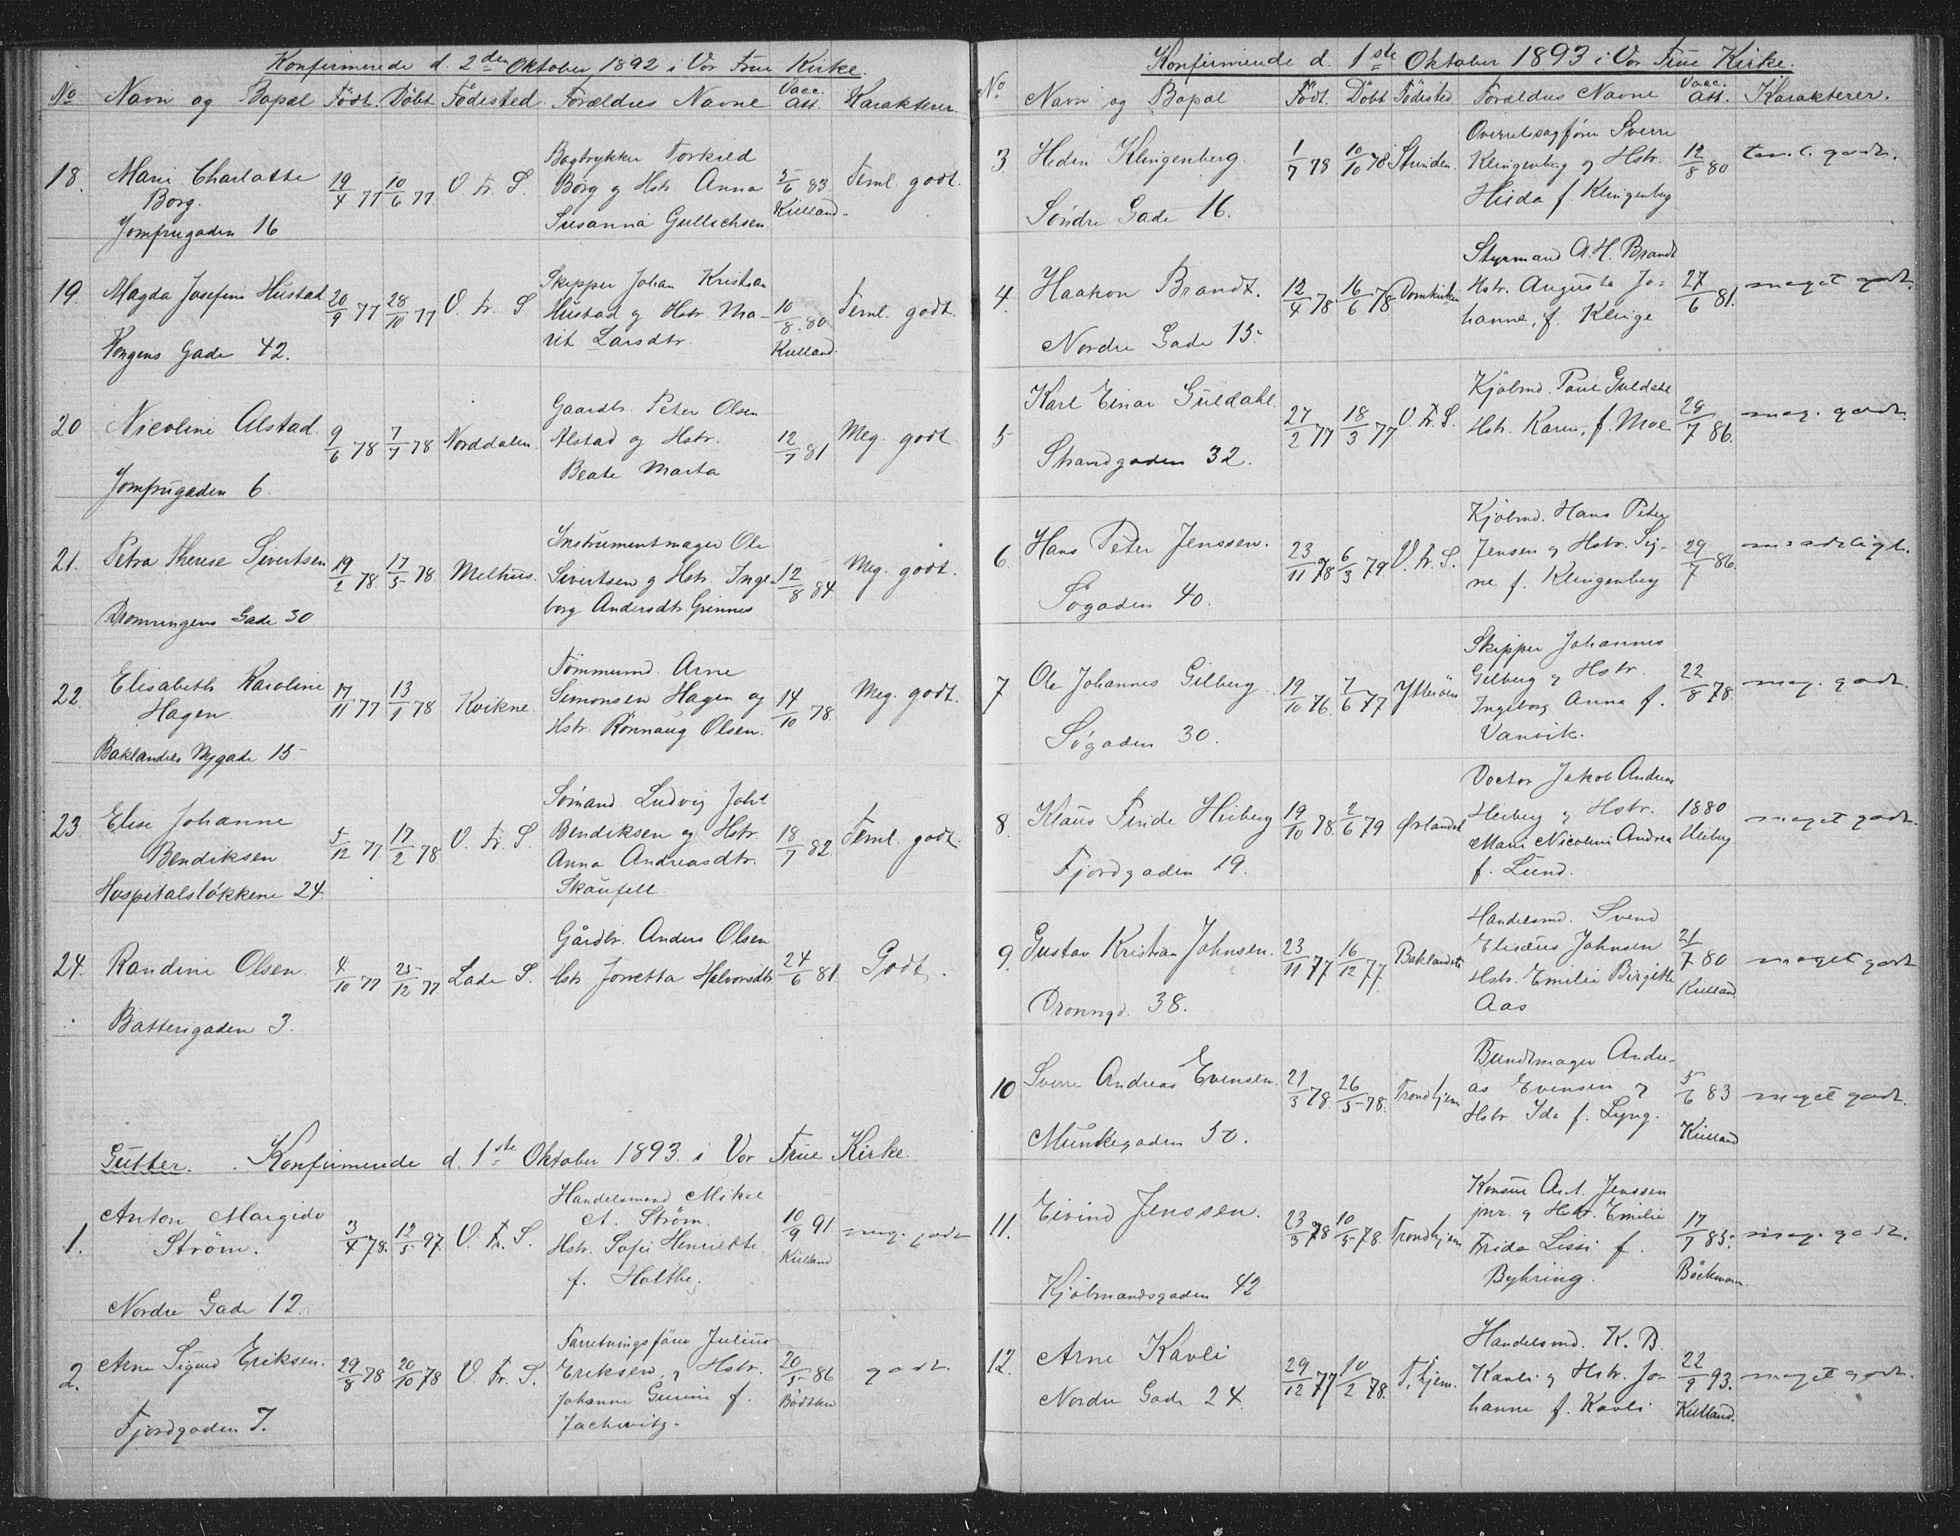 Konfirmerede d. 2den Oktober 1892 i Vor Frue Kirke.
No Navn og Bopæl Födt. Döbt Födested. Forældres Navne Vacc. Att. Karakterer.
18. Marie Charlotte Borg. Jomfrugaden 16
19/4 77 10/6 77 V. Fr. S.
Bogtrykker Torkild
Borg og Hstr. Anna
Susanna Gullichsen.
5/6 83. Kielland. Teml. godt.
19. Magda Josefine Hustad
Kongens Gade 42.
20/9 77 28/10 77 V. Fr. S
Skipper Johan Kristian
Hustad og Hstr. Ma-
rit Larsdtr.
10/8 80 Kielland. Teml. godt.
20 Nicoline Alstad.
Jomfrugaden 6.
9/6 78 7/7 78 Norddalen.
Gaardbr. Peter Olsen
Alstad og Hstr.
Beate Marta
12/7 81 Meg. godt
21. Petra Therese Sivertsen
Dronningens Gade 30
19/2 78. 17/5 78. Melhus.
Instrumentmager Ole
Sivertsen og Hstr. Inge-
borg Andersdtr. Grinnes
12/8 84 Meg. godt.
22. Elisabeth Karoline
Hagen.
Baklandets Nygade 15
17/11 77 13/1 78 Kvikne.
Tömmermd. Arne
Simonsen Hagen og
Hstr. Rönnaug Olsen.
14/10 78. Meg. godt.
23. Elise Johanne
Bendiksen.
Hospitalslökkene 24.
5/12 77 17/2 78. V. Fr. S
Sömand Ludvig Joh.
Bendiksen og Hstr.
Anna Andreasdtr.
Skaufell
18/7 82. Teml. godt.
24. Randine Olsen.
Batterigaden 3.
4/10 77 25/12 77 Lade S.
Gårdbr. Anders Olsen
Hstr. Jorretta Halvorsdtr.
24/6 81 Godt.
Gutter. Konfirmerede d. 1ste Oktober 1893. i Vor Frue Kirke.
1. Anton Margido
Ström.
Nordre Gade 12.
3/4 78. 12/5 97. V. Fr. S.
Handelsmand Mikal
A. Ström.
Hstr. Sofie Henriette,
f. Holthe.
10/9 91 Kielland meg. godt
2. Arne Sigurd Eriksen.
Fjordgaden 7.
29/8 78 20/10 78 V. Fr. S.
Forretningsförer Julius
Eriksen og Hstr.
Johanne f.
Jachwitz.
20/5 86 godt.
Konfirmerede d. 1ste Oktober 1893 i Vor Frue Kirke.
No Navn og Bopæl Födt. Döbt Födested Forældres Navne Vacc. Att. Karakterer.
3 Hedin Klingenberg.
Söndre Gade 16.
1/7 78 10/10 78 Strinden.
Overretssagförer Sverre
Klingenberg og Hstr.
Hilda f. Klingenberg
12/8 80 teml. godt.
4. Haakon Brandt.
Nordre Gade 15
12/4 78. 16/6 78 Domkirken
Styrmand A. H. Brandt
Hstr. Augusta Jo-
hanne, f. Klinge
27/6 81. meget godt.
5 Karl Einar Guldahl.
Strandgaden 32.
27/2 77 18/3 77 V. Fr. S.
Kjöbmd. Paul Guldahl
Hstr. Karen, f. Moe
28/7 86. meg. godt.
6. Hans Peter Jenssen.
Sögaden 40.
23/11 78 6/3 79 V. Fr. S.
Kjöbmd. Hans Peter
Jensen og Hstr. Sig-
ne f. Klingenberg
29/7 86. maadeligt.
7 Ole Johannes Gilberg
Sögaden 30.
19/10 76. 7/6 77 Ytterøen
Skipper Johannes
Gilberg og Hstr.
Ingeborg Anna f.
Vanvik.
22/8 78. meg. godt.
8. Klaus Finde Heiberg
Fjordgaden 19.
19/10 78. 2/6 79 Ørlandet
Doctor Jakob Andreas
Heiberg og Hstr.
Marie Nicoline Andrea
f. Lund.
1880 Heiberg meget godt.
9. Gustav Kristian Johnsen.
Dronngd. 38.
23/11 77 16/12 77. Baklandet
Handelsmd. Svend
Elisæus Johnsen
Hstr. Emilie Birgitte
Aas
21/7 80 Kielland. meget godt
10 Sverre Andreas Evensen.
Munkegaden 50.
21/3 78. 26/5 78. Trondhjem
Bundtmager Andre-
as Evensen og
Hstr Ida f. Lyng.
5/6 83 Kielland meget godt.
11. Eivind Jenssen.
Kjöbmandsgaden 42
23/3 78 10/5 78. Trondhjem
Konsul Ant. Jenssen
jnr. og Hstr. Emilie
Frida Lissi f.
Byhring.
17/7 85. Böckmann meg. godt.
12. Arne Kavli
Nordre Gade 24.
29/12 77 10/2 78. T.hjem.
Handelsmd. K. B.
Kavli og Hstr. Jo-
hanne f. Kavli
22/9 93. Kielland. meget godt.